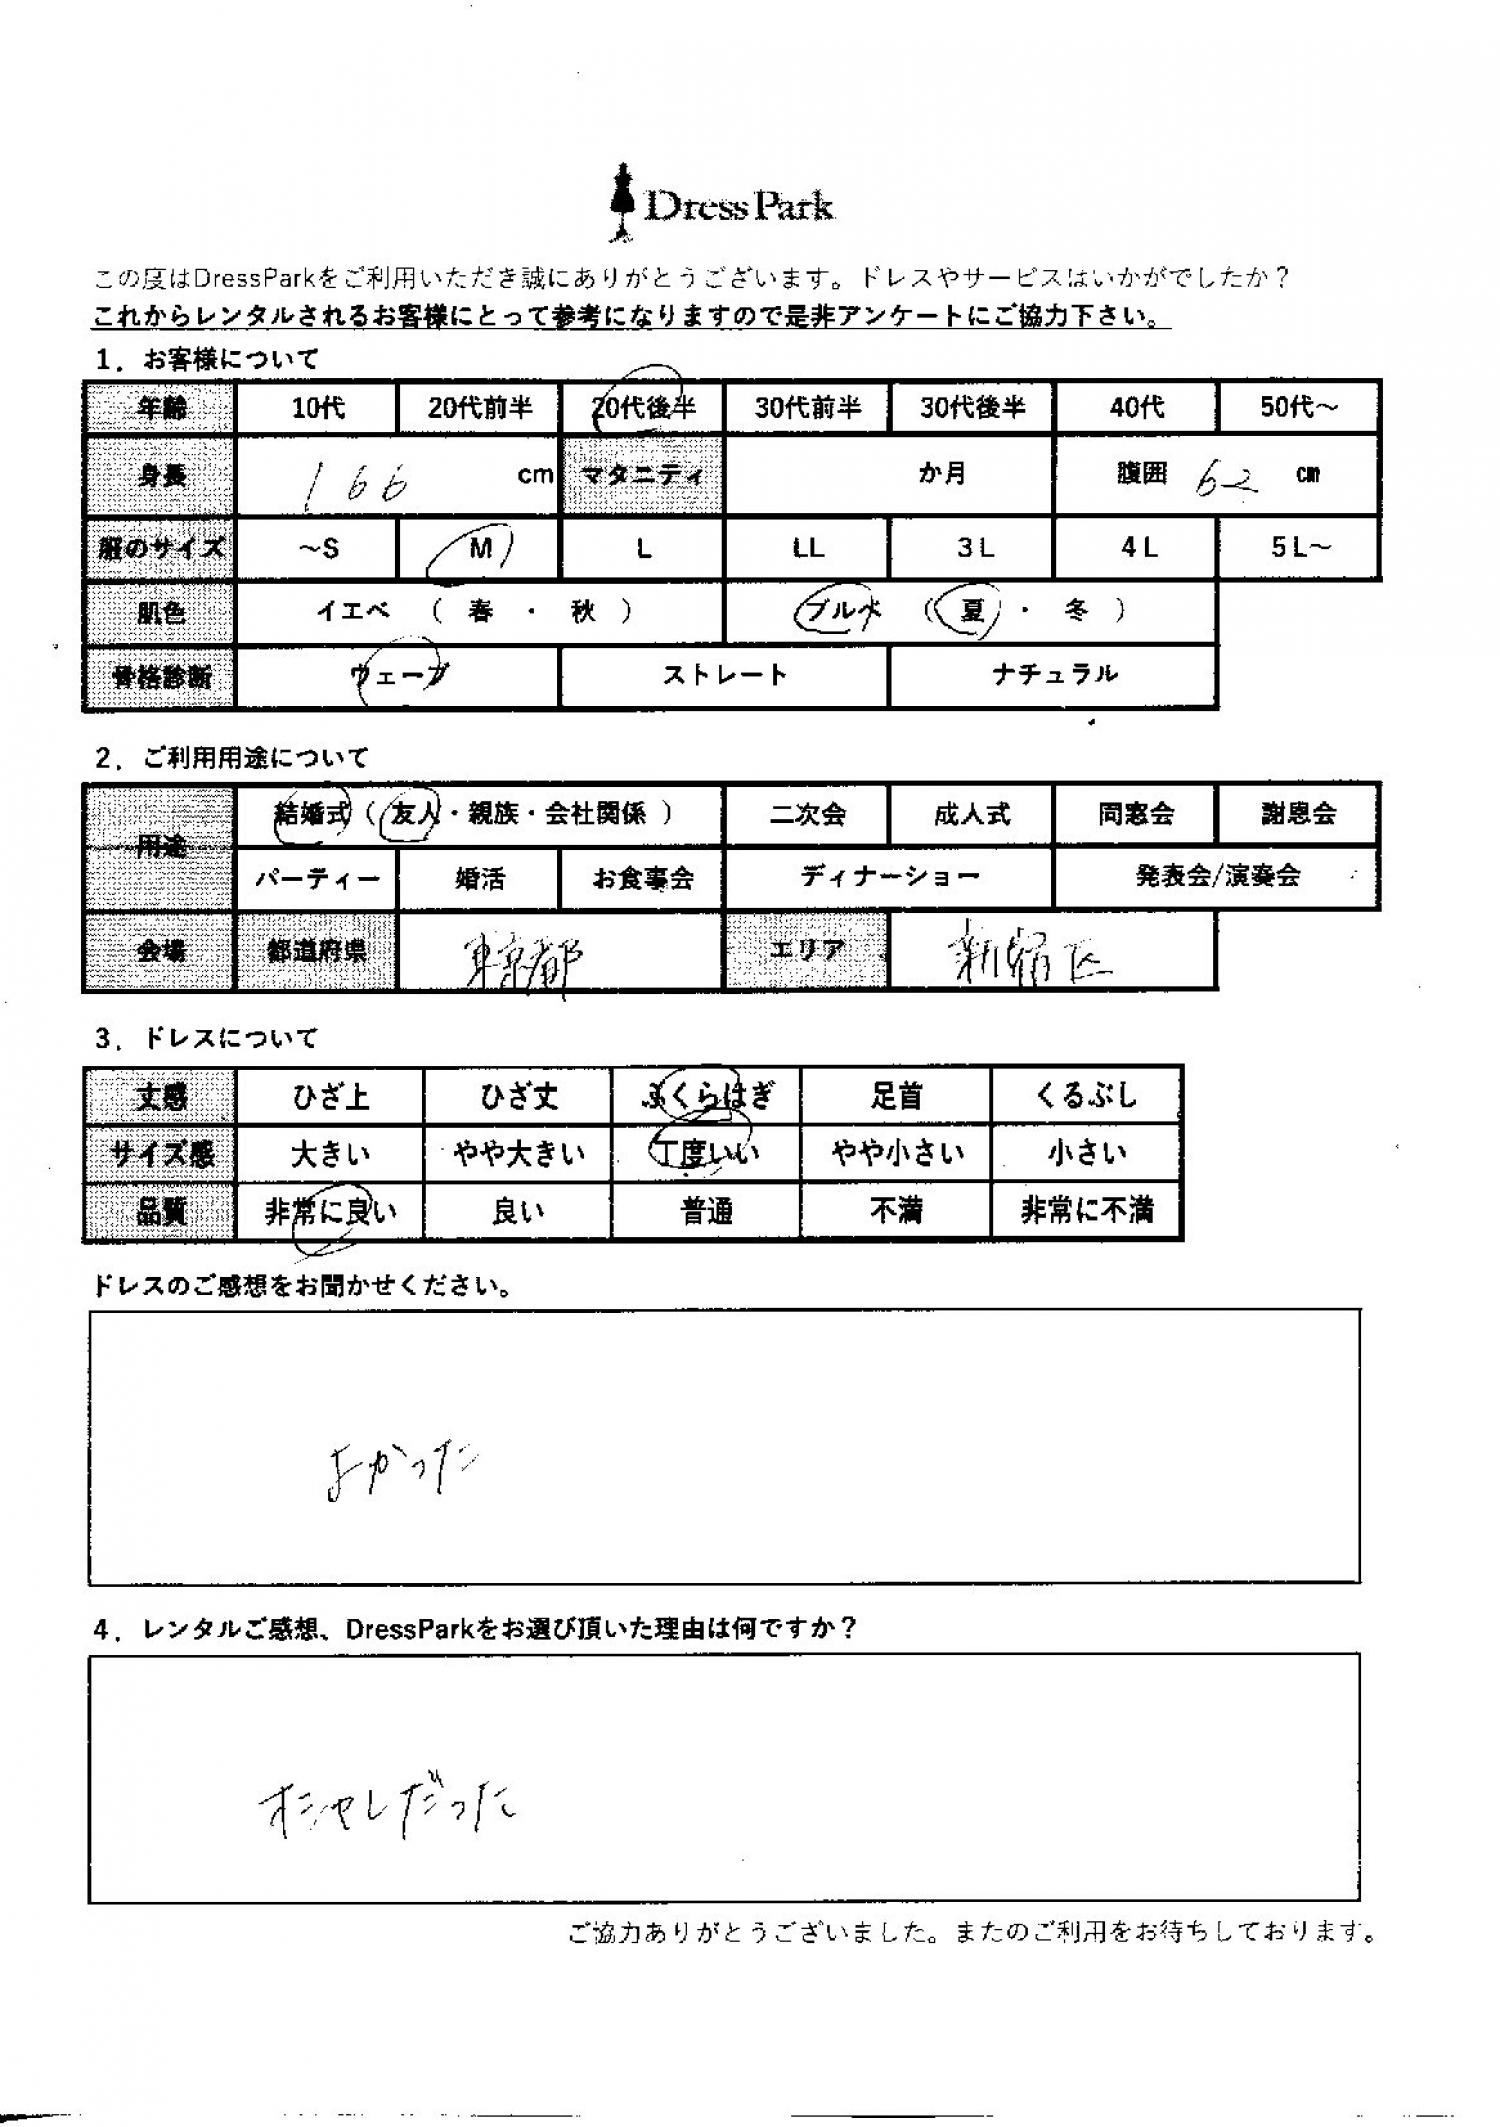 Dress Park
この度はDressParkをご利用いただき誠にありがとうございます。ドレスやサービスはいかがでしたか？
これからレンタルされるお客様にとって参考になりますので是非アンケートにご協力下さい。
1．お客様について
年齢 10代 20代前半 20代後半 30代前半 30代後半 40代 50代～
身長 166 cm マタニティ か月 腹囲 62 cm
服のサイズ ～S M L LL 3L 4L 5L～
肌色 イエベ （ 春 ・ 秋 ） ブルベ （ 夏 ・ 冬 ）
骨格診断 ウェーブ ストレート ナチュラル
2．ご利用用途について
用途 結婚式（友人・親族・会社関係 ） 二次会 成人式 同窓会 謝恩会
パーティー 婚活 お食事会 ディナーショー 発表会/演奏会
会場 都道府県 東京都 エリア 新宿区
3．ドレスについて
丈感 ひざ上 ひざ丈 ふくらはぎ 足首 くるぶし
サイズ感 大きい やや大きい 丁度いい やや小さい 小さい
品質 非常に良い 良い 普通 不満 非常に不満
ドレスのご感想をお聞かせください。
よかった
4．レンタルご感想、DressParkをお選び頂いた理由は何ですか？
オシャレだった
ご協力ありがとうございました。またのご利用をお待ちしております。